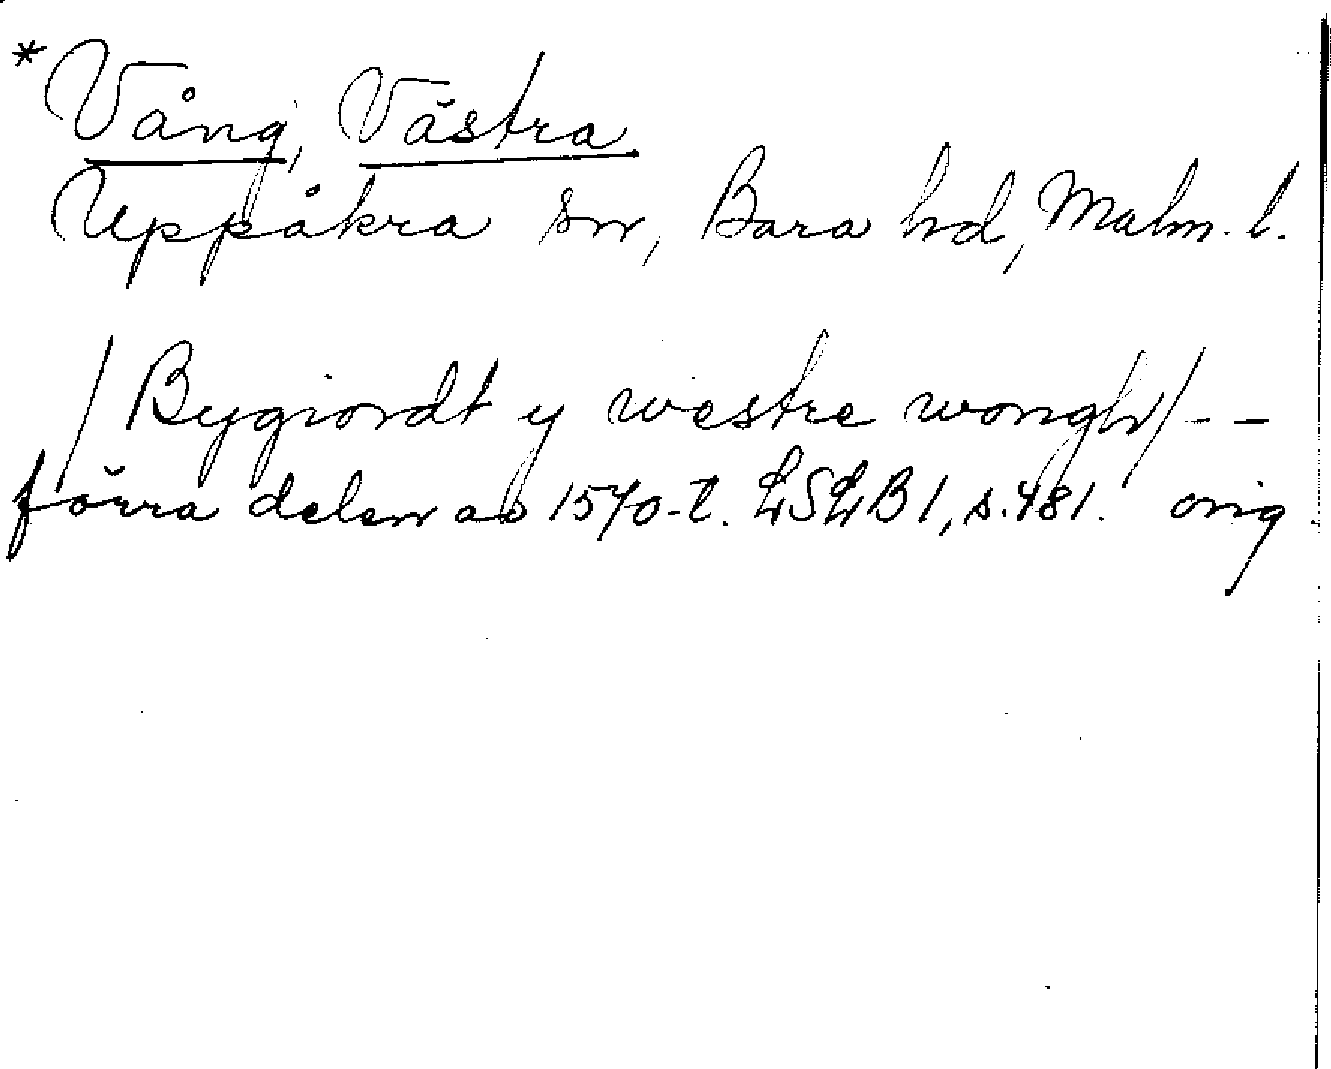 *Vång, Västra
Uppåkra sn, Bara hd, Malm. l.
/Bygiordt y westre wongh/--
förra delen av 1570-t. LSLB1, s.481. orig